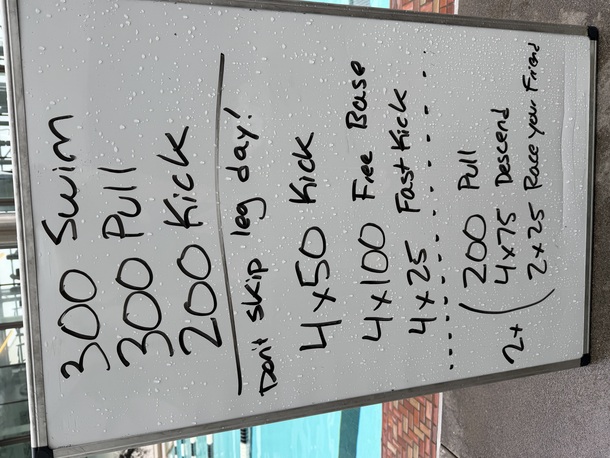 300 Swim
300 Pull
200 Kick
Don't skip leg day!
4x50 Kick
4x100 Free Base
4x25 Fast Kick
2x ( 200 Pull
4x75 Descend
2x25 Race your Friend